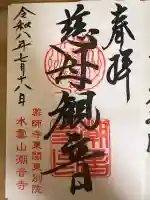 奉拝
慈母観音
薬師寺東関東別院
水雲山潮音寺
令和八年七月十八日